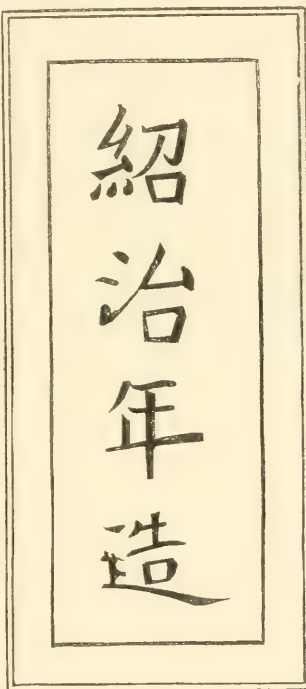 紹治年造